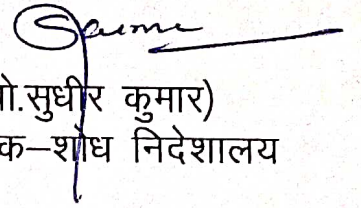 ो.सुधीर कुमार)
क–शोध निदेशालय